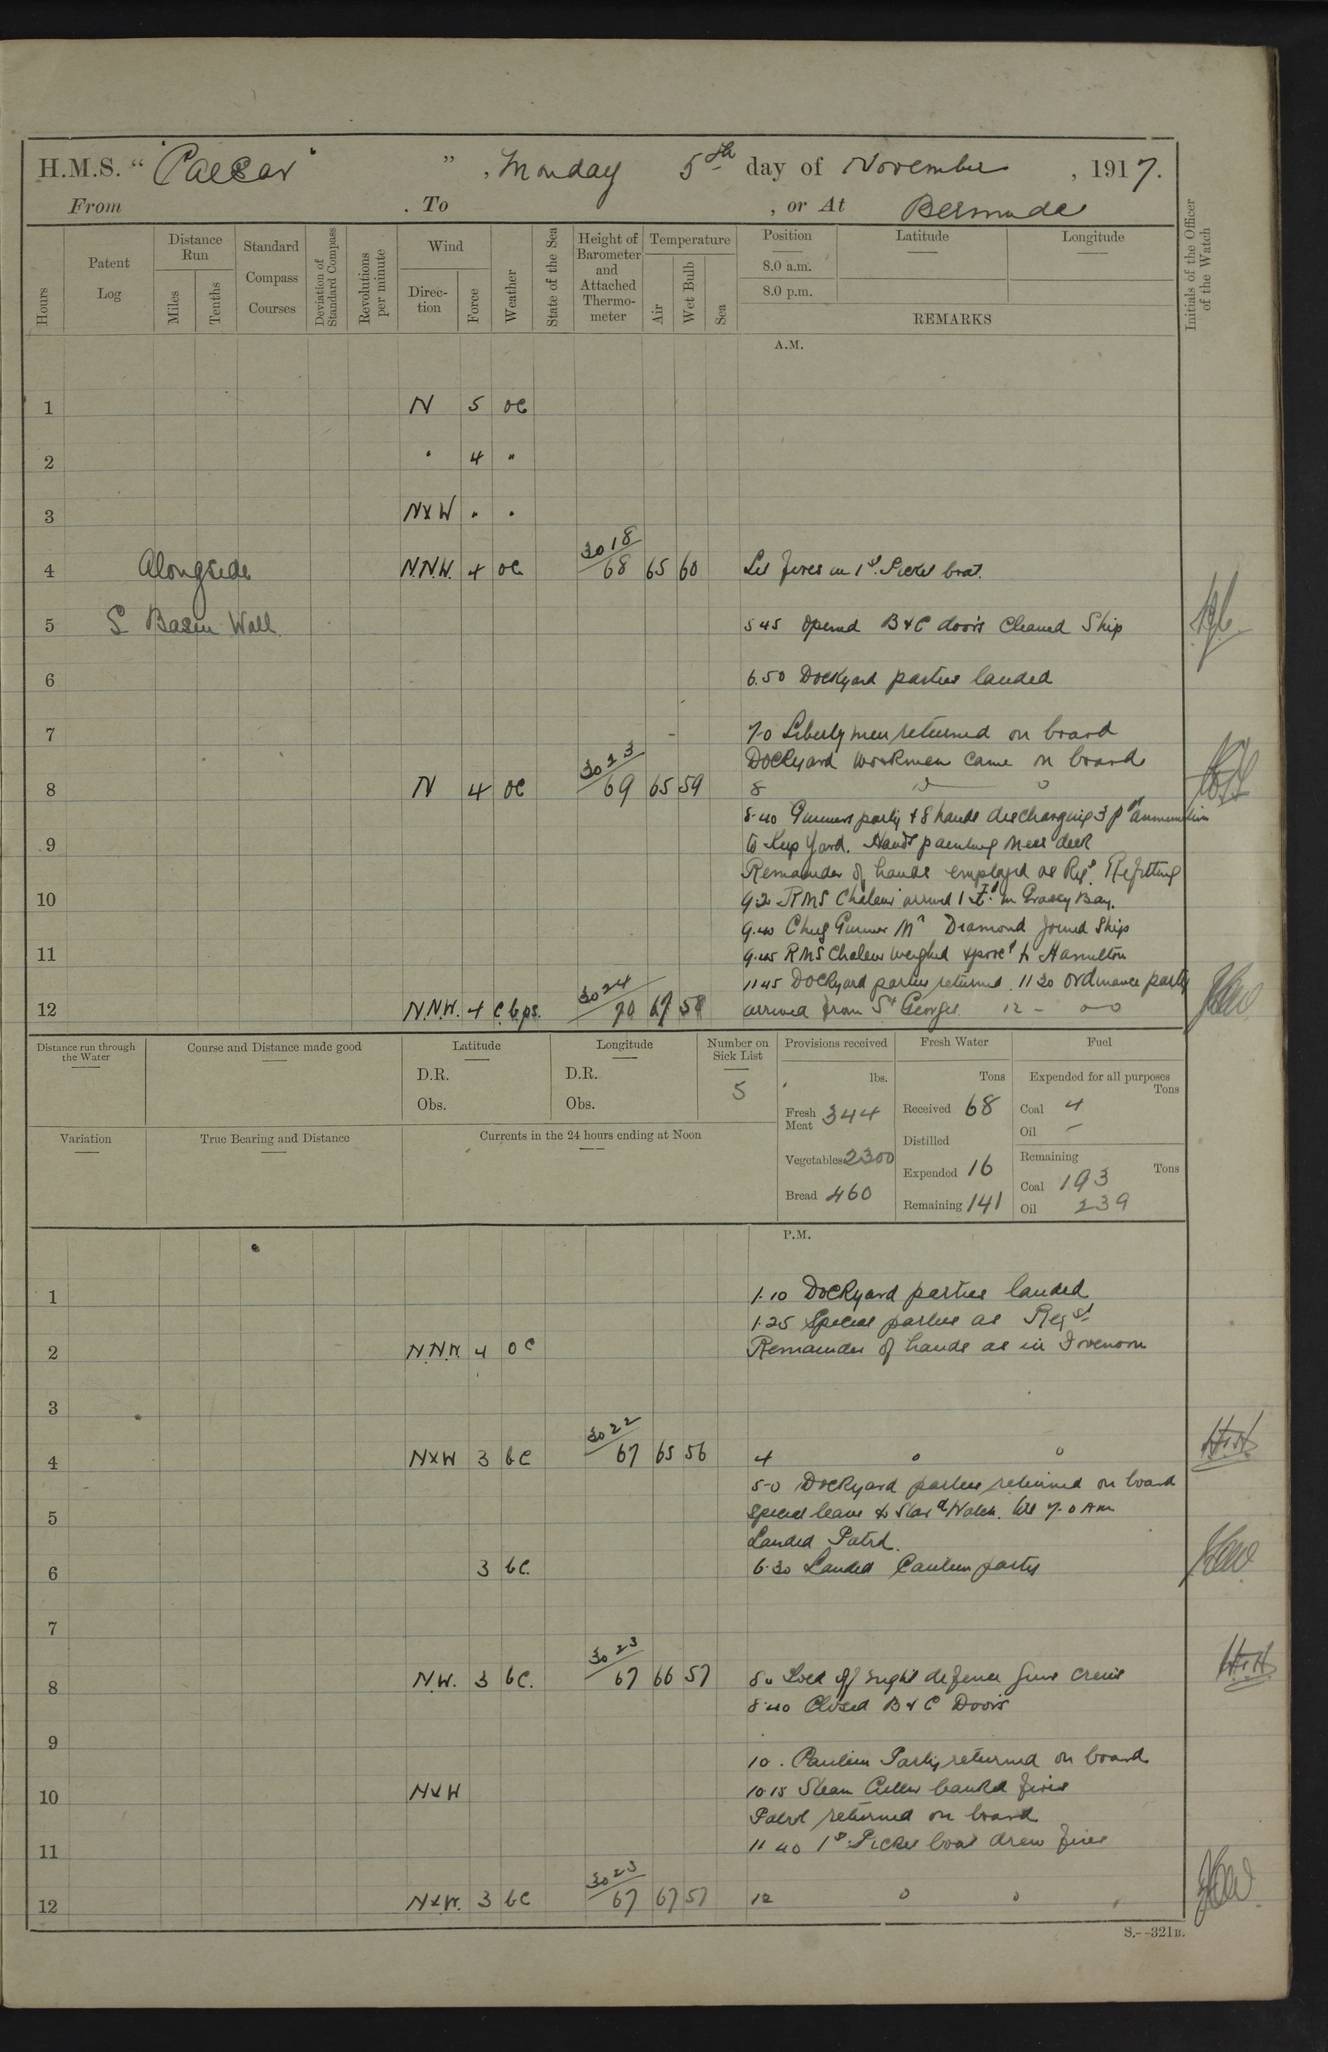 H.M.S. " "Caesar" ", Monday 5th day of November, 1917.
From . To , or At Bermuda
Hours
Patent Log
Distance Run
Miles
Tenths
Standard Compass Courses
Deviation of Standard Compass
Revolutions per minute
Wind
Direction
Force
Weather
State of the Sea
Height of Barometer and Attached Thermometer
Temperature
Air
Wet Bulb
Sea
Position
8.0 a.m.
8.0 p.m.
Latitude
Longitude
REMARKS
Initials of the Officer of the Watch
A.M.
1 N 5 oc
2 " 4 "
3 NxW " "
4 Alongside N.N.W. 4 oc 3018/68 65 60 Lit fires in 1st Picket boat.
5 S Basin Wall 5 45 Opened B & C doors Cleaned Ship
6 6.50 Dockyard parties landed
7 7.0 Liberty men returned on board
Dockyard workmen came on board
8 N 4 oc 3023/69 65 59 8
8.40 Gunners party & 8 hands discharging 3 pdr ammunition
9 to Keep Yard. Hands painting Mess deck
Remainder of hands employed as Reqd. Refitting
10 9.20 RMS Chaleur arrived in Grassy Bay.
9.40 Chief Gunner Mr Diamond joined Ship
11 9.45 RMS Chaleur weighed & procd to Hamilton
11 45 Dockyard parties returned. 11 30 Ordnance party
12 N.N.W. 4 c.b.p.s. 3024/70 67 58 arrived from St Georges. 12 -
Distance run through the Water
Course and Distance made good
Latitude
D.R.
Obs.
Longitude
D.R.
Obs.
Number on Sick List
5
Provisions received
lbs.
Fresh Meat 344
Vegetables 2300
Bread 460
Fresh Water
Tons
Received 68
Distilled
Expended 16
Remaining 141
Fuel
Expended for all purposes
Tons
Coal 4
Oil -
Remaining
Tons
Coal 193
Oil 239
Variation
True Bearing and Distance
Currents in the 24 hours ending at Noon
P.M.
1 1.10 Dockyard parties landed
1.25 Special parties as Reqd
2 N.N.W 4 oc Remainder of hands as in Forenoon
3
4 NxW 3 bc 3022/67 65 56 4 " "
5-0 Dockyard parties returned on board
5 Special leave to Stard Watch. till 7.0 AM
Landed Patrol.
6 3 bc. 6.30 Landed Canteen party
7
8 N.W. 3 bc. 3023/67 66 57 8.0 Told off night defence guns crews
8.40 Closed B & C Doors
9
10. Canteen Party returned on board
10 NxW 10.15 Steam Cutter banked fires
Patrol returned on board
11 11 40 1st Picket boat drew fires
12 NxW. 3 bc 3023/67 67 57 12 " "
S.—321B.